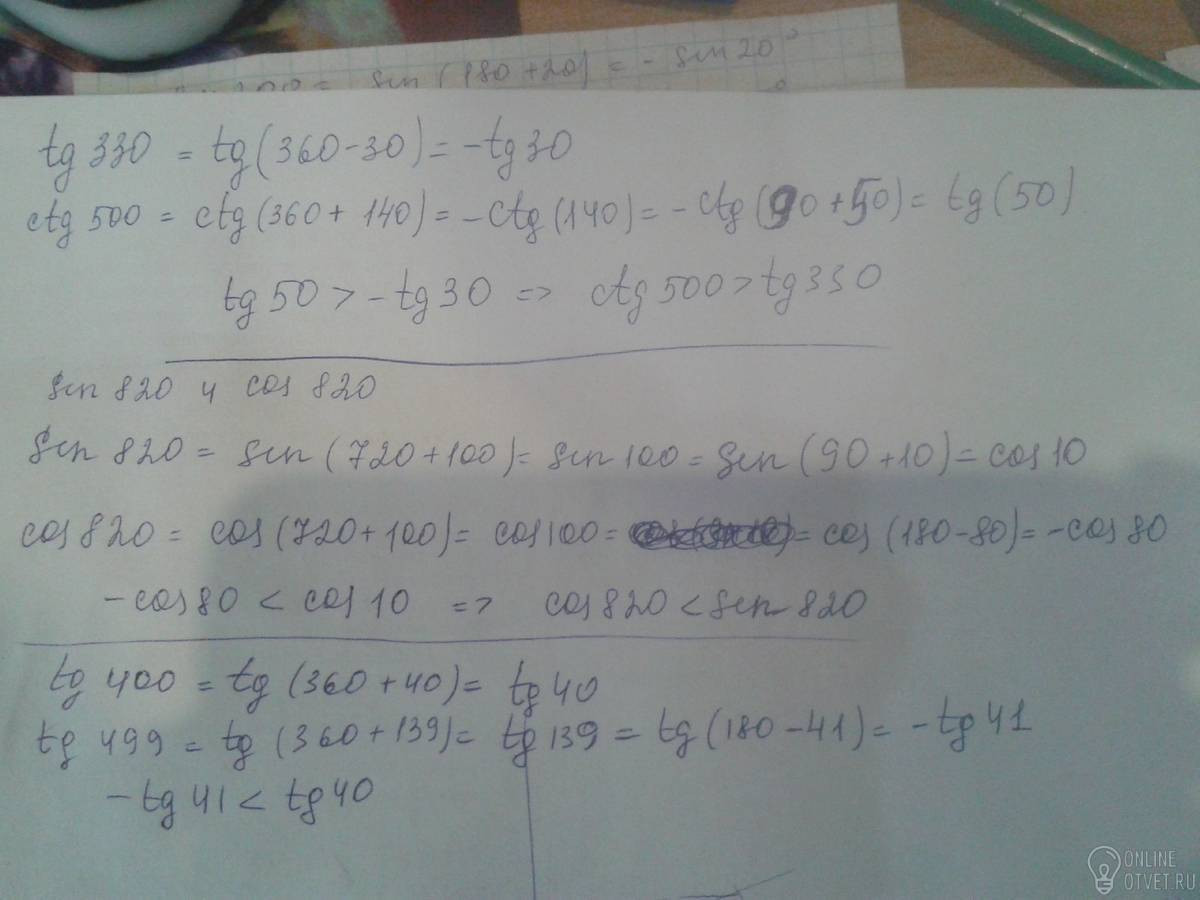 sin (180 + 20) = - sin 20°
tg 330 = tg (360 - 30) = - tg 30
ctg 500 = ctg (360 + 140) = - ctg (140) = - ctg (90 + 50) = tg (50)
tg 50 > - tg 30 => ctg 500 > tg 330
sin 820 и cos 820
sin 820 = sin (720 + 100) = sin 100 = sin (90 + 10) = cos 10
cos 820 = cos (720 + 100) = cos 100 = = cos (180 - 80) = - cos 80
- cos 80 < cos 10 => cos 820 < sin 820
tg 400 = tg (360 + 40) = tg 40
tg 499 = tg (360 + 139) = tg 139 = tg (180 - 41) = - tg 41
- tg 41 < tg 40
ONLINE
OTVET.RU